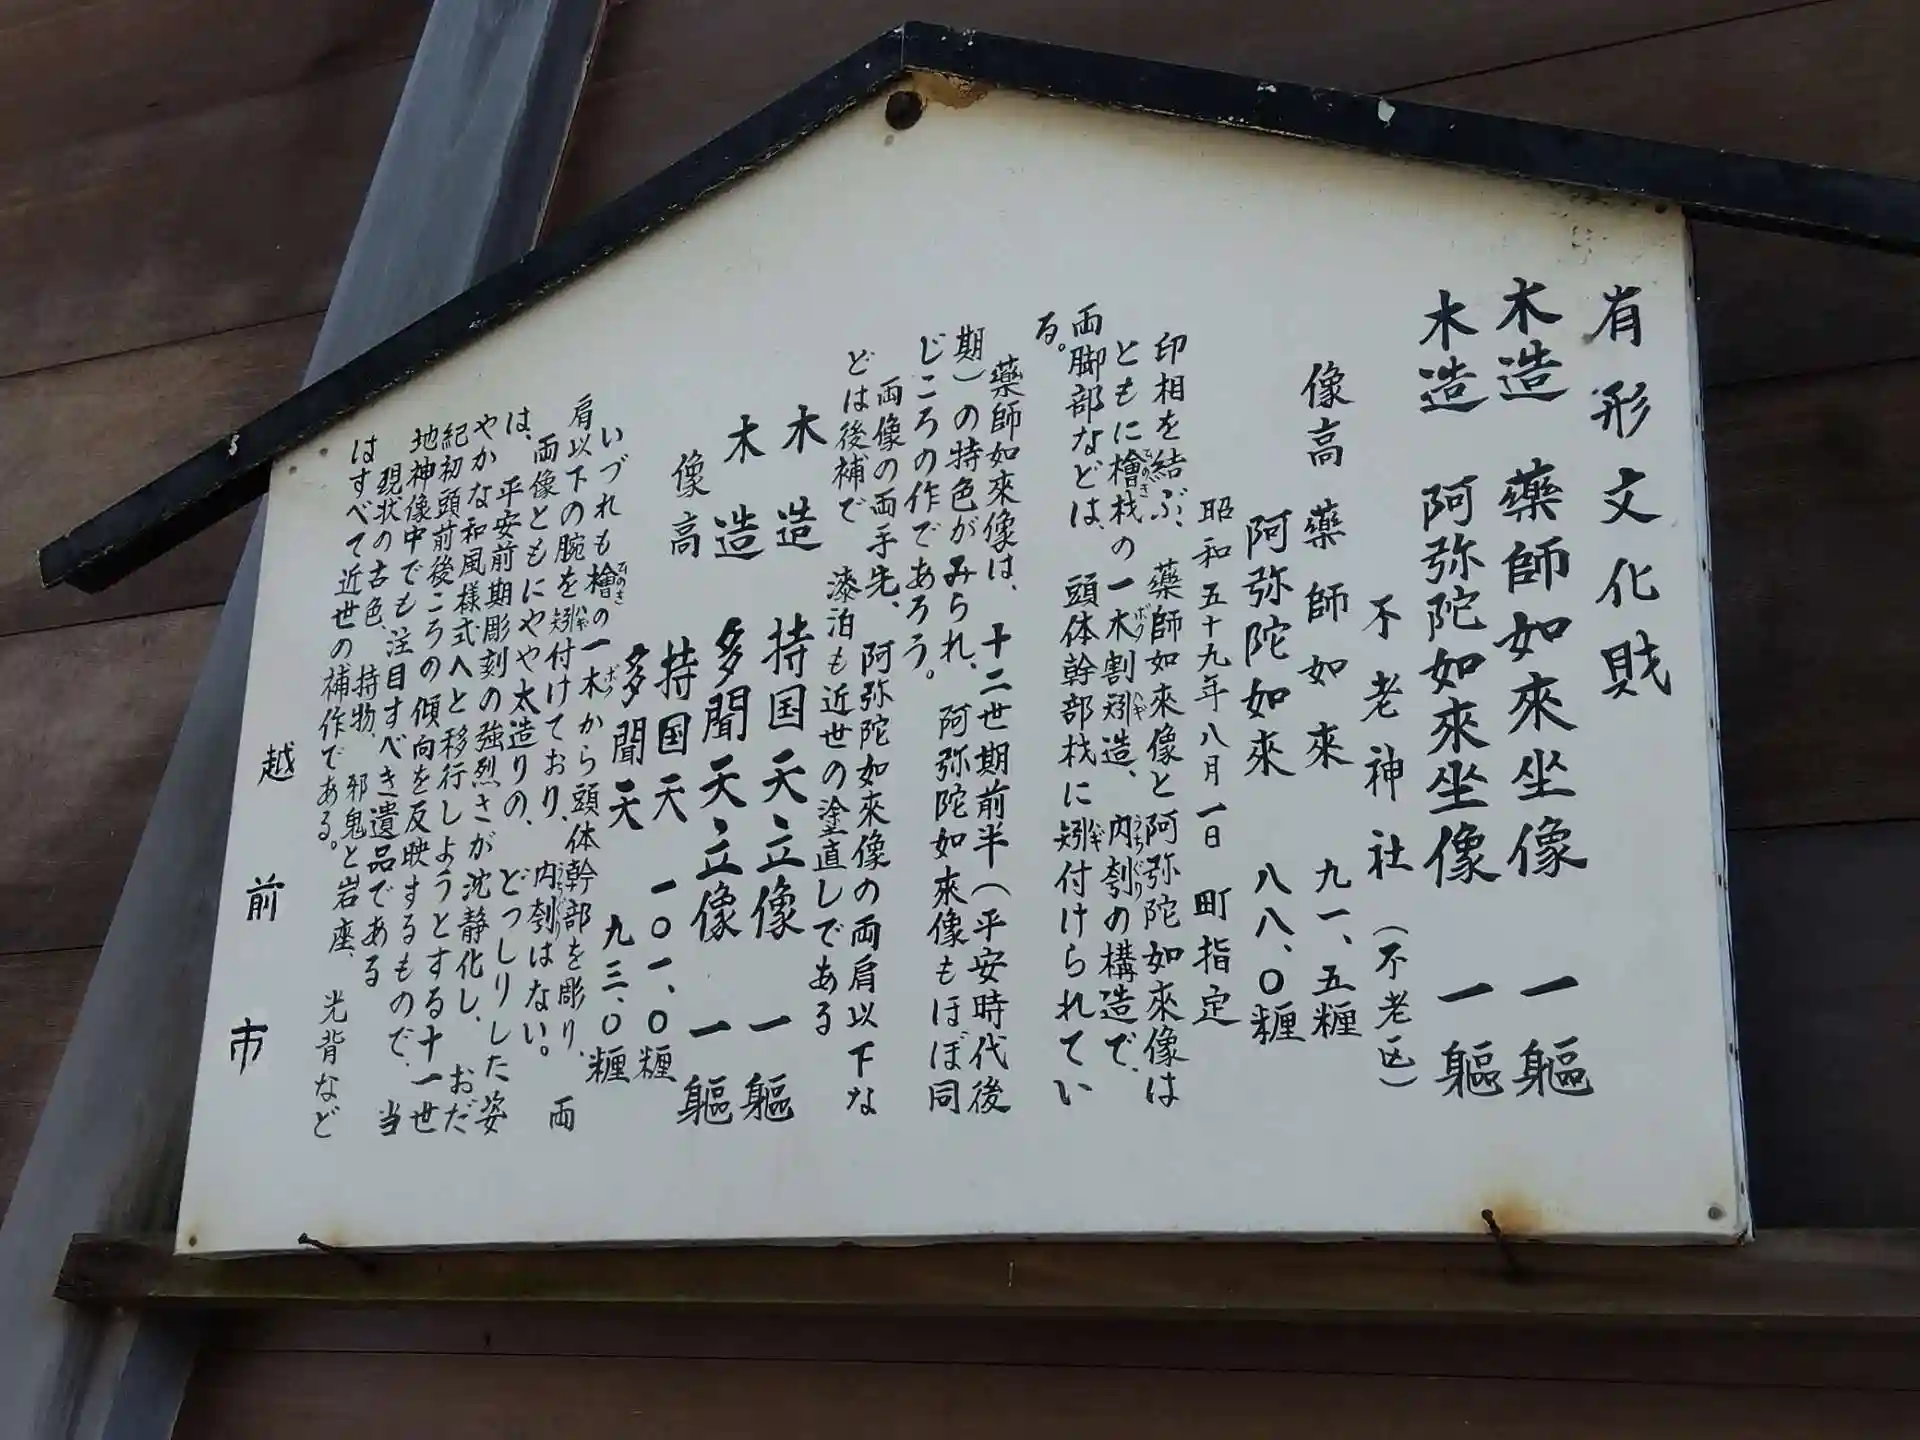 有形文化財
木造 藥師如來坐像 一軀
木造 阿弥陀如來坐像 一軀
不老神社（不老区）
像高 藥師如來 九一、五糎
阿弥陀如來 八八、〇糎
昭和五十九年八月一日 町指定
印相を結ぶ、藥師如來像と阿弥陀如來像は
ともに檜材の一木割矧造、内刳の構造で、
両脚部などは、頭体幹部材に矧付けられてい
る。
藥師如來像は、十二世期前半（平安時代後
期）の特色がみられ、阿弥陀如來像もほぼ同
じころの作であろう。
両像の両手先、阿弥陀如來像の両肩以下な
どは後補で 漆泊も近世の塗直しである
木造 持国天立像 一軀
木造 多聞天立像 一軀
像高 持国天 一〇一、〇糎
多聞天 九三、〇糎
いづれも檜の一木から頭体幹部を彫り、両
肩以下の腕を矧付けており、内刳はない。
両像ともにやや太造りの、どっしりした姿
は、平安前期彫刻の強烈さが沈静化し、おだ
やかな和風様式へと移行しようとする十一世
紀初頭前後ころの傾向を反映するもので、当
地神像中でも注目すべき遺品である
現状の古色、持物、邪鬼と岩座、光背など
はすべて近世の補作である。
越前市